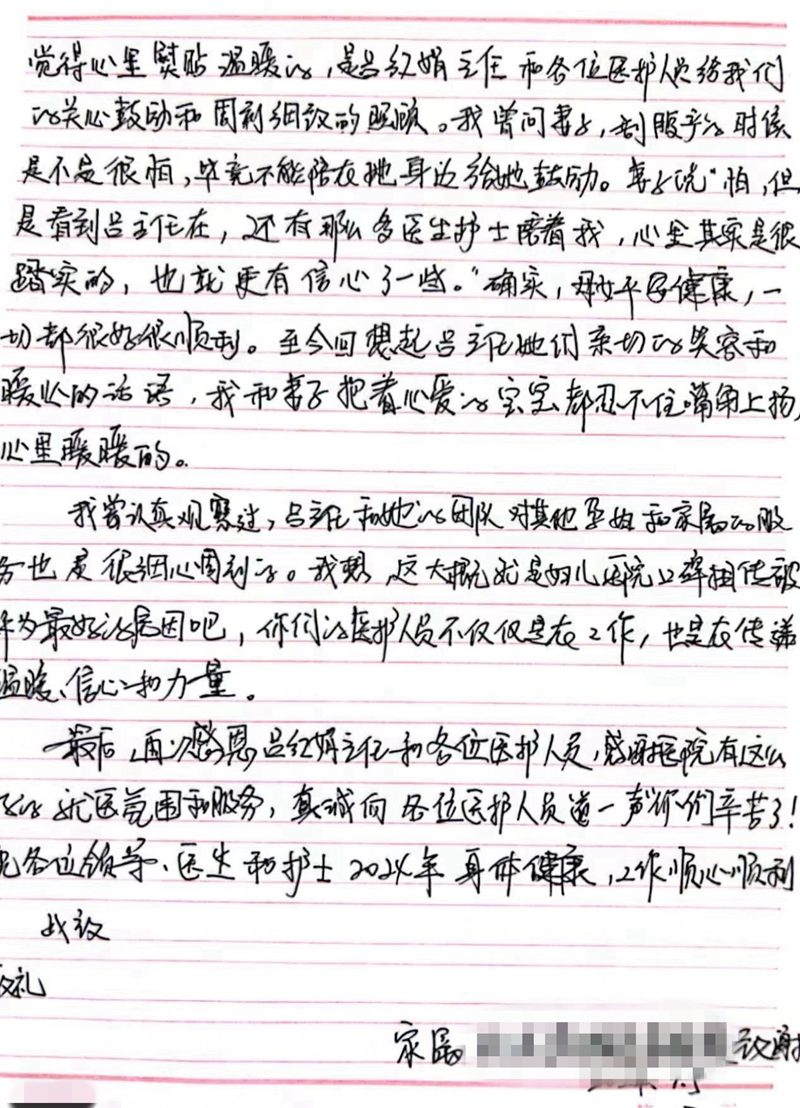 觉得心里熨贴温暖的,是吕红娟主任和各位医护人员给我们
的关心鼓励和周到细致的照顾。我曾问妻子,剖腹产的时候
是不是很怕,毕竟不能陪在她身边给她鼓励。妻子说“怕,但
是看到吕主任在,还有那么多医生护士陪着我,心里其实是很
踏实的,也就更有信心了一些。”确实,母女平安健康,一
切都很好很顺利。至今回想起吕主任她们亲切的笑容和
暖心的话语,我和妻子抱着心爱的宝宝都忍不住嘴角上扬,
心里暖暖的。
我曾认真观察过,吕主任和她的团队对其他孕妇和家属的服
务也是很细心周到的。我想,这大概就是妇儿医院口碑相传被
作为最好的原因吧,你们的医护人员不仅仅是在工作,也是在传递
温暖、信心和力量。
最后,再次感恩吕红娟主任和各位医护人员,感谢医院有这么
好的就医氛围和服务,真诚向各位医护人员道一声“你们辛苦了!
祝各位领导、医生和护士2024年身体健康,工作顺心顺利
此致
敬礼
家属 致谢